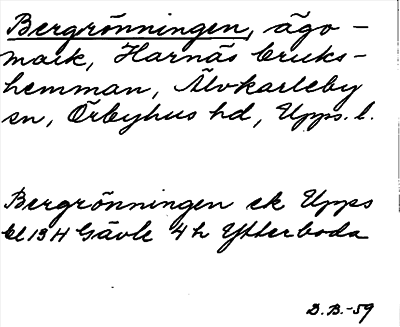 Bergrönningen, ägo-
mark, Harnäs bruks-
hemman, Älvkarleby
sn, Örbyhus hd, Upps. l.
Bergrönningen ek Upps
bl 13 H Gävle 4 h Ytterboda
D.B.-59